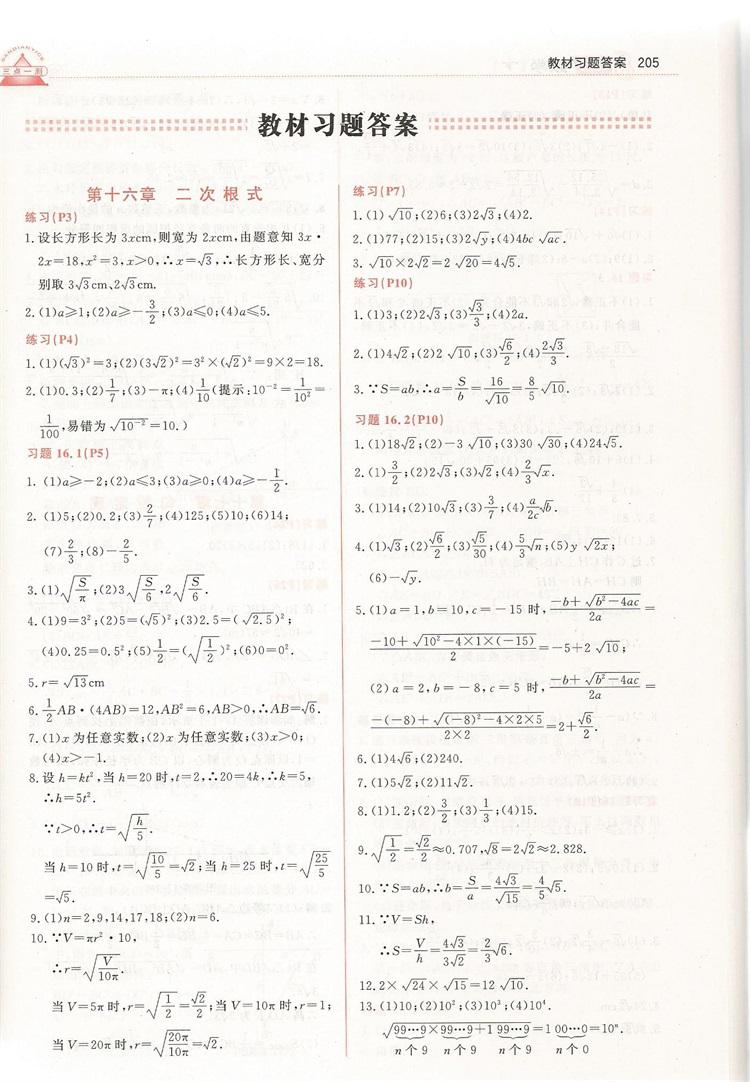 SANDIANYICE
三点一测
教材习题答案 205
教材习题答案
第十六章 二次根式
练习(P3)
1. 设长方形长为 3xcm,则宽为 2xcm,由题意知 3x·
2x=18,x²=3,x>0,∴x=√3,∴长方形长、宽分
别取 3√3cm,2√3cm.
2. (1)a≥1;(2)a≥-3/2;(3)a≤0;(4)a≤5.
练习(P4)
1. (1)(√3)²=3;(2)(3√2)²=3²×(√2)²=9×2=18.
2. (1)0.3;(2)1/7;(3)-π;(4)1/10(提示:10⁻²=1/10²=
1/100,易错为√(10⁻²)=10.)
习题 16.1(P5)
1. (1)a≥-2;(2)a≤3;(3)a≥0;(4)a>-1/2.
2. (1)5;(2)0.2;(3)2/7;(4)125;(5)10;(6)14;
(7)2/3;(8)-2/5.
3. (1)√(S/π);(2)3√(S/6),2√(S/6).
4. (1)9=3²;(2)5=(√5)²;(3)2.5=(√2.5)²;
(4)0.25=0.5²;(5)1/2=(√(1/2))²;(6)0=0².
5. r=√13cm
6. 1/2AB·(4AB)=12,AB²=6,AB>0,∴AB=√6.
7. (1)x 为任意实数;(2)x 为任意实数;(3)x>0;
(4)x>-1.
8. 设 h=kt²,当 h=20 时,t=2,∴20=4k,∴k=5,
∴h=5t².
∵t>0,∴t=√(h/5).
当 h=10 时,t=√(10/5)=√2;当 h=25 时,t=√(25/5)
=√5.
9. (1)n=2,9,14,17,18;(2)n=6.
10. ∵V=πr²·10,
∴r=√(V/10π)
当 V=5π 时,r=√(1/2)=√2/2;当 V=10π 时,r=1;
当 V=20π 时,r=√(20π/10π)=√2.
练习(P7)
1. (1)√10;(2)6;(3)2√3;(4)2.
2. (1)77;(2)15;(3)2√y;(4)4bc√ac.
3. √10×2√2=2√20=4√5.
练习(P10)
1. (1)3;(2)2√3;(3)√3/3;(4)2a.
2. (1)4√2;(2)2√10;(3)√6/2;(4)2√3/3.
3. ∵S=ab,∴a=S/b=16/√10=8/5√10.
习题 16.2(P10)
1. (1)18√2;(2)-3√10;(3)30√30;(4)24√5.
2. (1)3/2;(2)2√3;(3)√2;(4)2/3√x.
3. (1)14;(2)10√3;(3)3/7;(4)a/2c√b.
4. (1)√3;(2)√6/2;(3)√5/30;(4)5/3√n;(5)y√2x;
(6)-√y.
5. (1)a=1,b=10,c=-15 时,(-b+√(b²-4ac))/2a=
(-10+√(10²-4×1×(-15)))/2=-5+2√10;
(2)a=2,b=-8,c=5 时,(-b+√(b²-4ac))/2a=
(-(-8)+√((-8)²-4×2×5))/(2×2)=2+√6/2.
6. (1)4√6;(2)240.
7. (1)5√2;(2)11√2.
8. (1)1.2;(2)3/2;(3)1/3;(4)15.
9. √(1/2)=√2/2≈0.707,√8=2√2≈2.828.
10. ∵S=ab,∴b=S/a=4√3/√15=4/5√5.
11. ∵V=Sh,
∴S=V/h=4√3/3√2=2/3√6.
12. 2×√24×√15=12√10.
13. (1)10;(2)10²;(3)10³;(4)10⁴.
√(99…9×99…9+1 99…9)=1 00…0=10ⁿ.
n个9 n个9 n个9 n个0